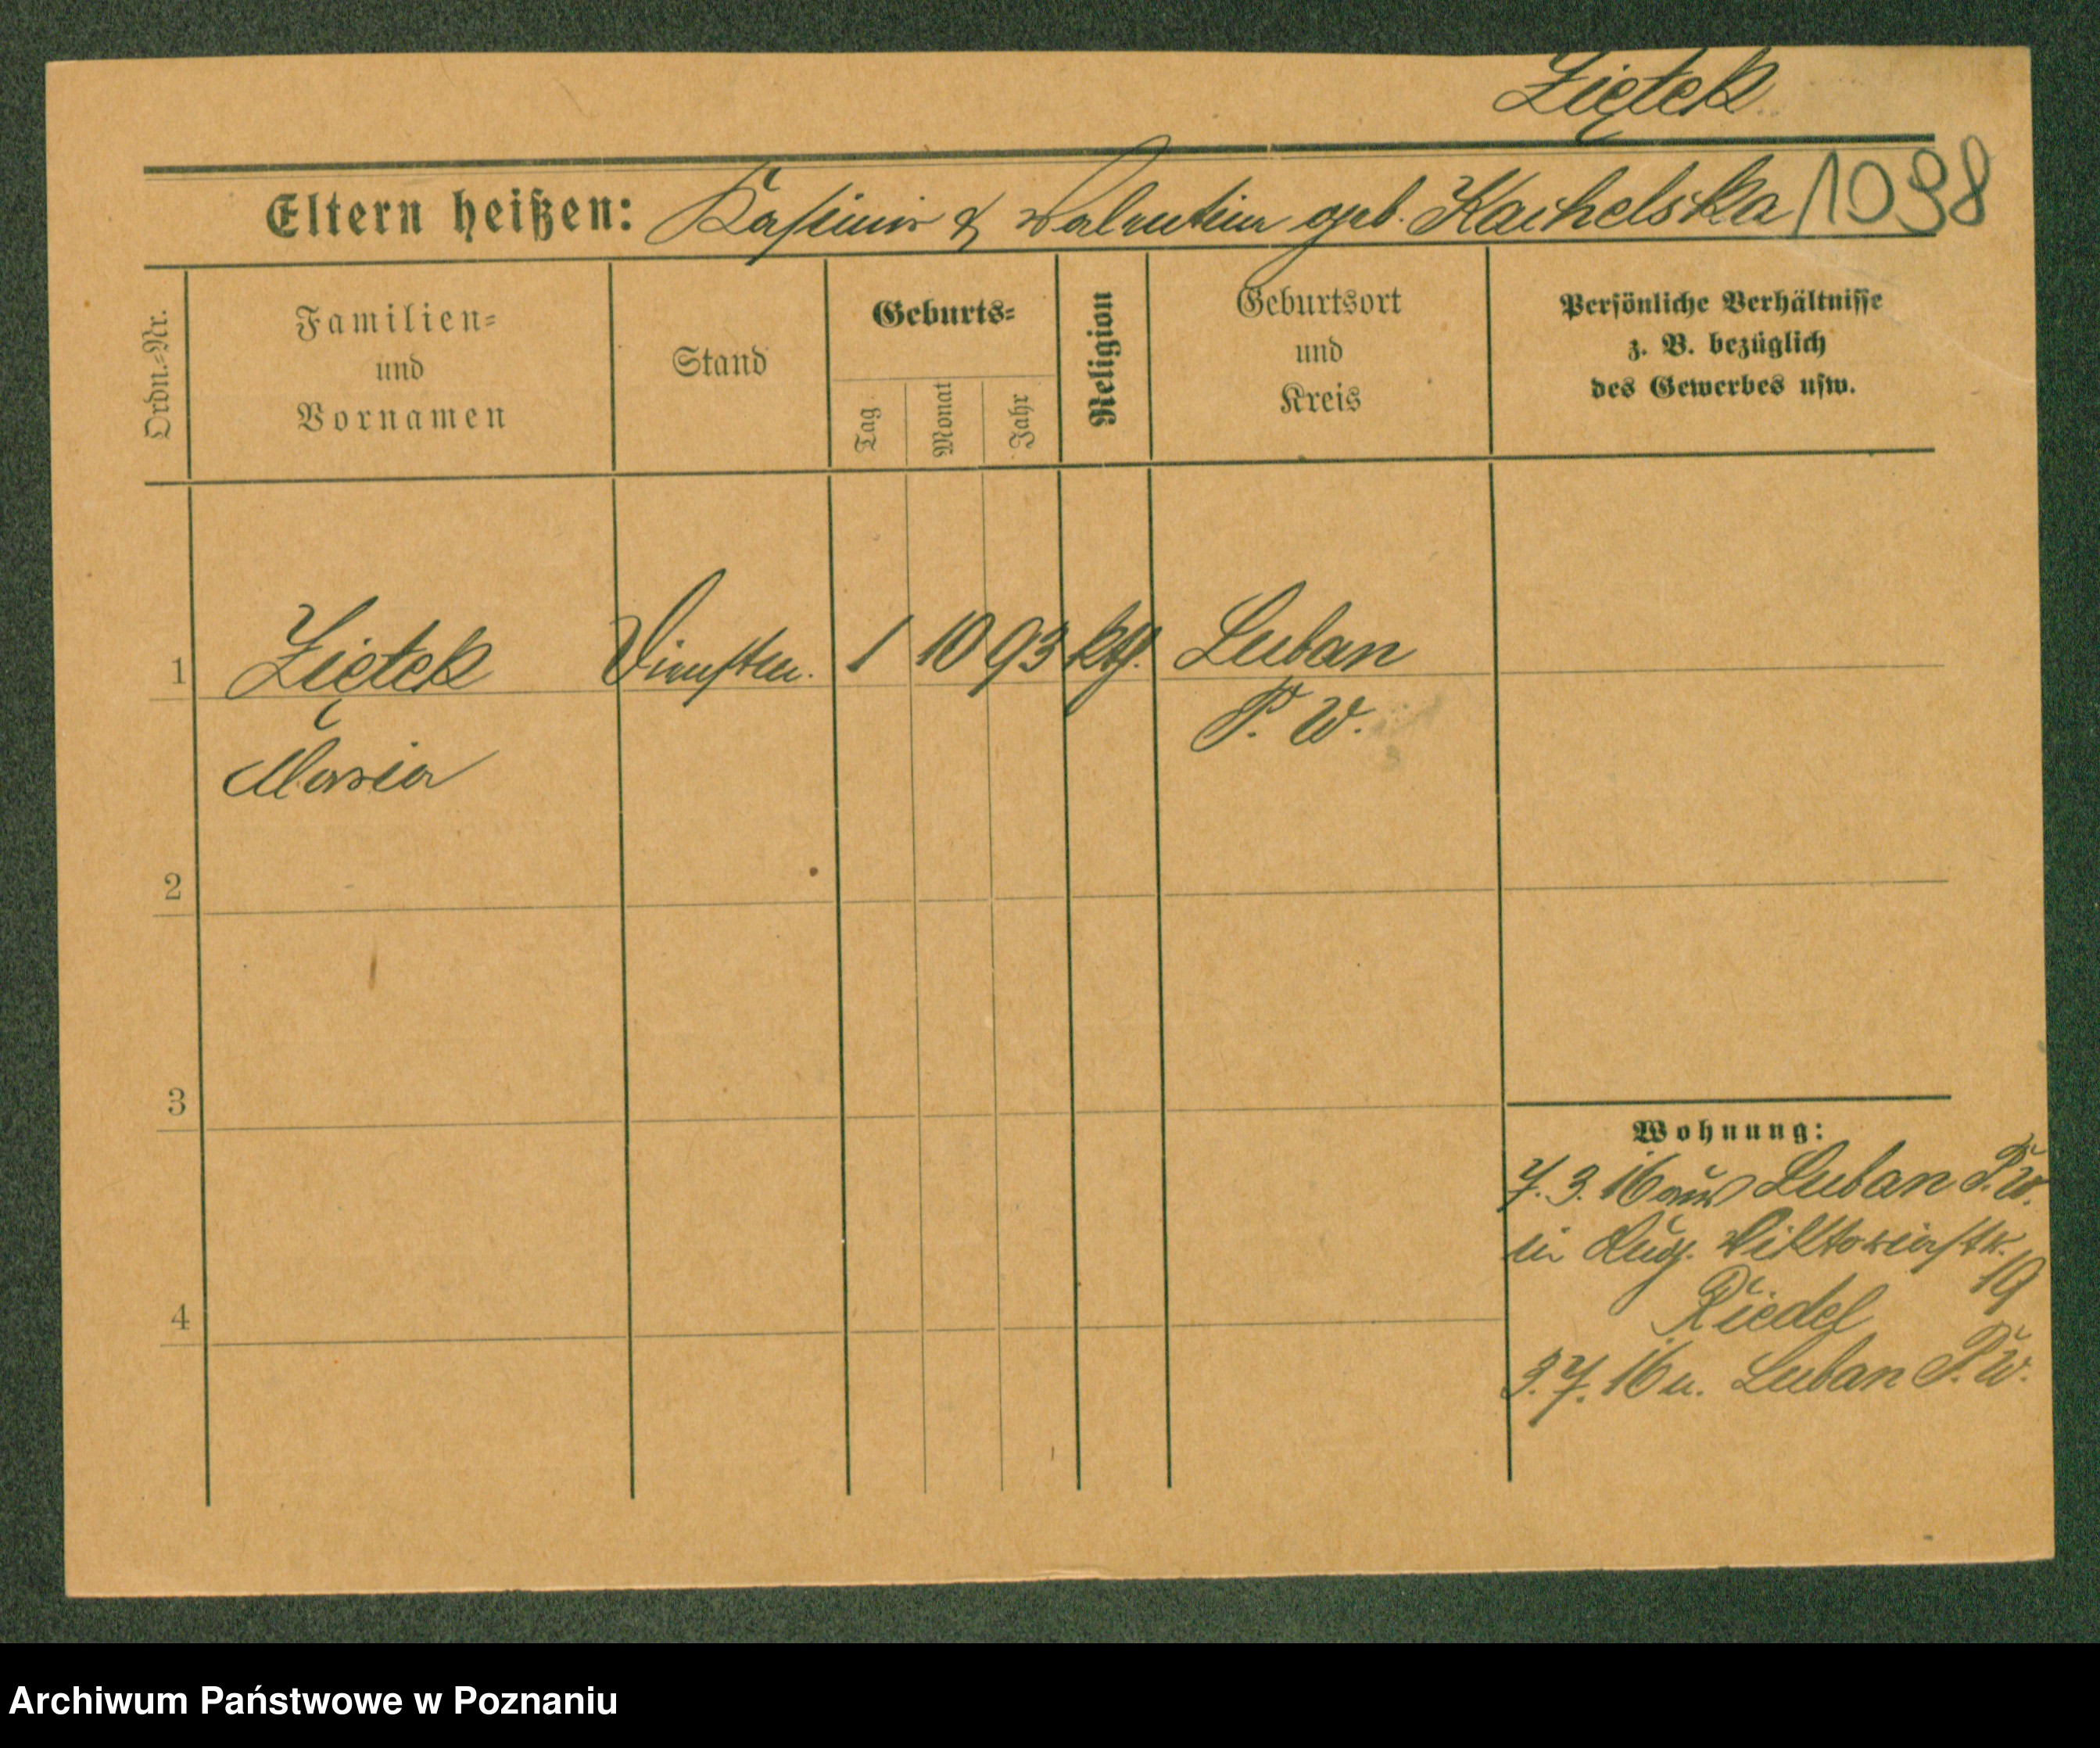 Ziętek
1098
Eltern heißen: Kasimir & Valentina geb. Kachelska
Ordn.-Nr.
Familien-
und
Vornamen
Stand
Geburts-
Tag
Monat
Jahr
Religion
Geburtsort
und
Kreis
Persönliche Verhältnisse
z. B. bezüglich
des Gewerbes usw.
1 Ziętek Dienstm. 1 10 93 kth. Luban
P. W.
Maria
2
3
4
Wohnung:
7. 3. 16 aus Luban P. W.
in Aug. Viktoriastr.
19
Riedel
3. 7. 16 n. Luban P. W.
Archiwum Państwowe w Poznaniu